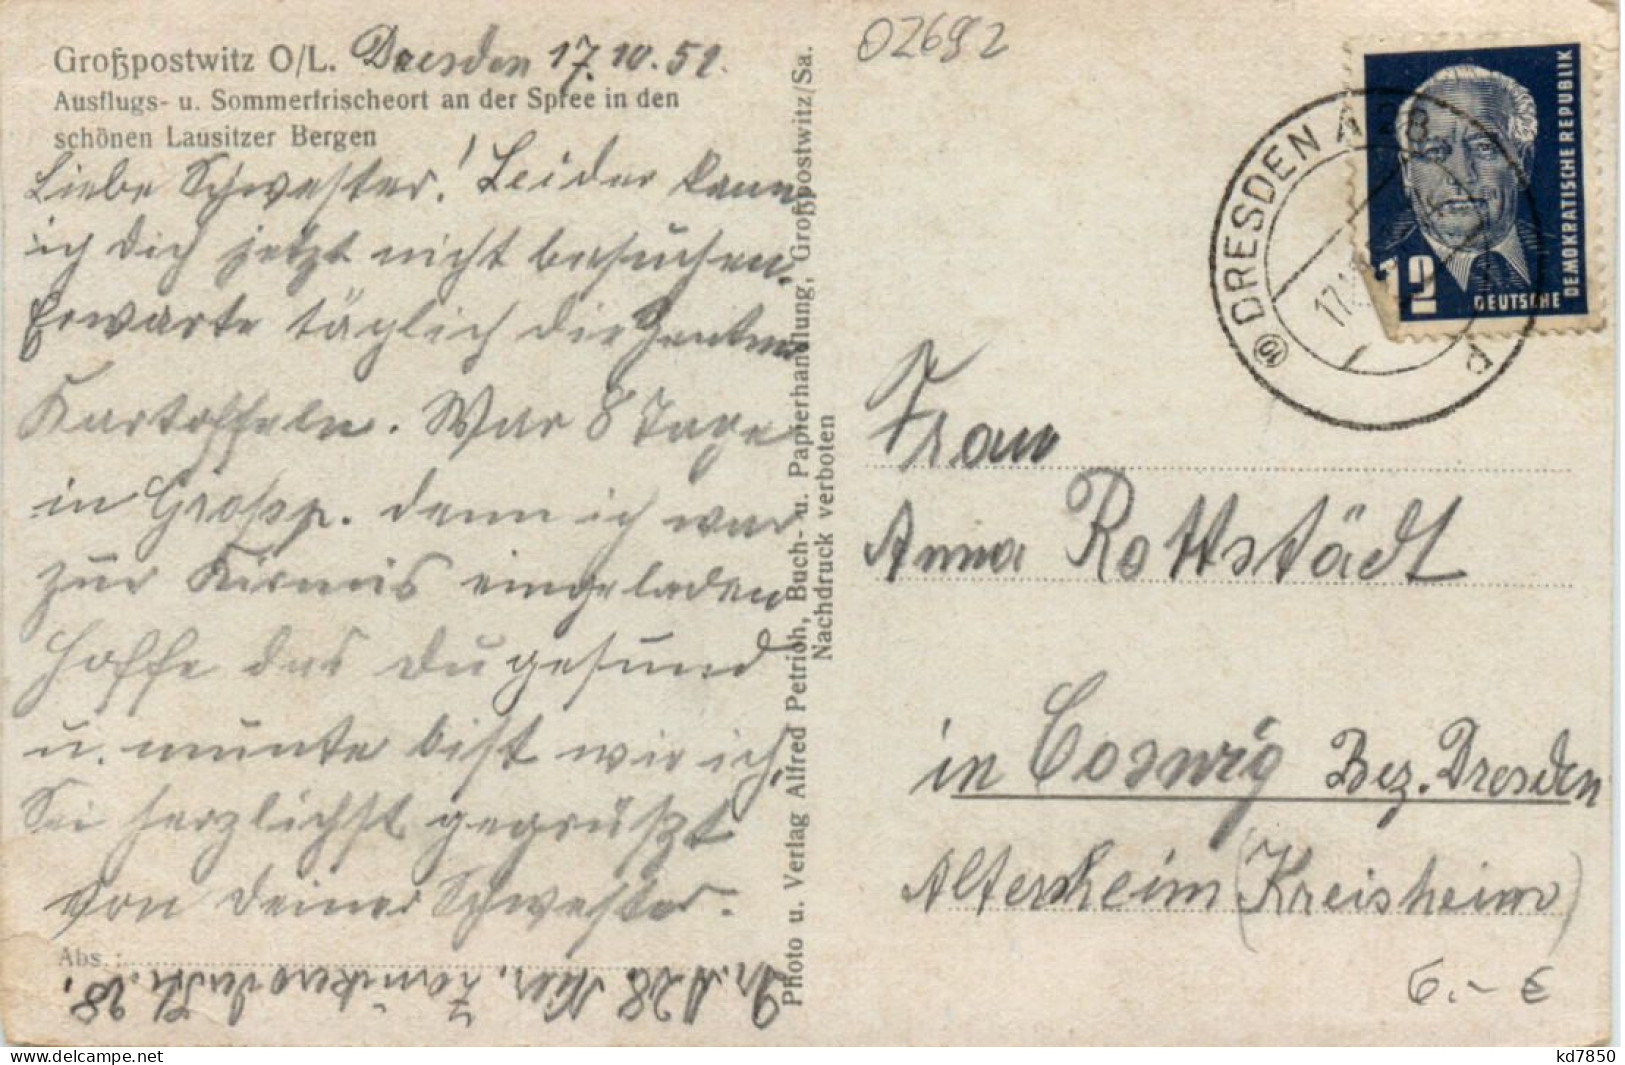 Großpostwitz O/L. Dresden 17.10.52.
Ausflugs- u. Sommerfrischeort an der Spree in den
schönen Lausitzer Bergen
Liebe Schwester! Leider kann
ich dich jetzt nicht besuchen.
Erwarte täglich die Zentner
Kartoffeln. War 8 Tage
in Grossp. denn ich war
zur Kirmis eingeladen
Hoffe das du gesund
u. munter bist wie ich,
Sei herzlichst gegrüßt
von deiner Schwester.
Abs.:
Dr. A 28
28.
Photo u. Verlag Alfred Petrich, Buch- u. Papierhandlung, Großpostwitz/Sa.
Nachdruck verboten
02692
DRESDEN A 28
17.
(10)
P
12
DEUTSCHE
DEMOKRATISCHE REPUBLIK
Frau
Anna Rottstädt
in Coswig Bez. Dresden
Altersheim (Kreisheim)
6.- €
kd7850